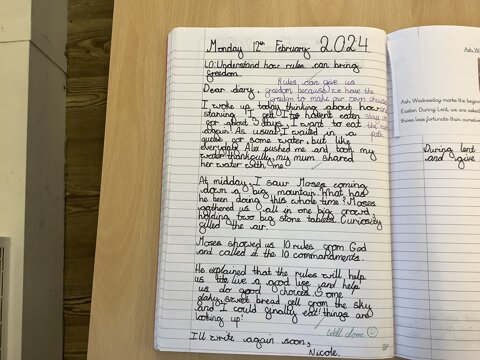 Monday 12th February 2024
LO: Understand how rules can bring
freedom.
Rules can give us
freedom because we have the
freedom to make our own choices
stay on
the right
path
Dear diary,
I woke up today thinking about how
starving I felt. I'd hadent eaten
for about 3 days, I want to eat
again! As usual I waited in a
queue for some water, but like
everyday Ala pushed me and took my
water thankfully my mum shared
her water with me.
At midday, I saw Moses coming
down a big mountain. What has
he been doing this whole time? Moses
gathered us all in one big crowd,
holding two big stone tablets. Curiosity
filled the air.
Moses showed us 10 rules from God
and called it the 10 commandments.
He explained that the rules will help
us to live a good life and help
us do good choices. Some
flaky, sweet bread fell from the sky
and I could finally eat! things are
looking up!
Well done
I'll write again soon,
Nicole.
Ash We
Ash Wednesday marks the beginn
Easter. During Lent, we are asked
those less fortunate than ourselves
During lent
and give